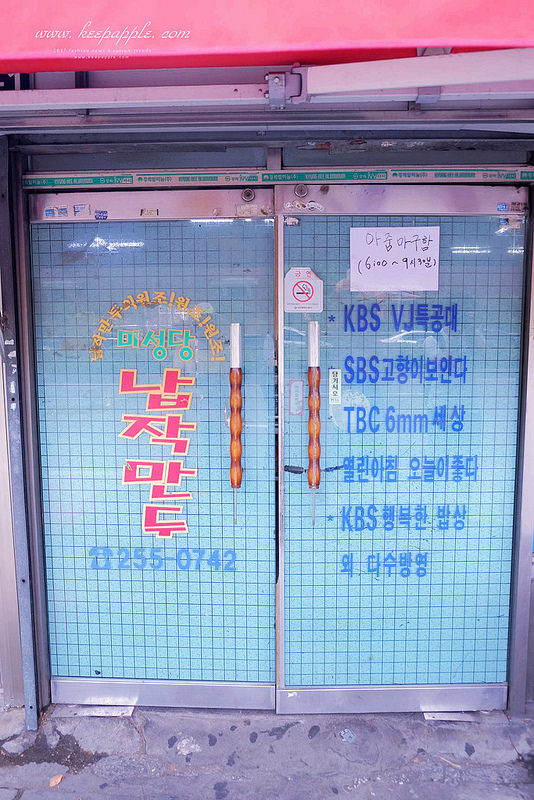 www.keepapple.com
2017 fashion news & fusion trends
www.keepapple.com
아줌마구함
(6:00~9시30분)
금연
납작만두의원조!원조!원조!
미성당
납작만두
☎255-0742
당기시오
* KBS VJ특공대
SBS고향이보인다
TBC 6mm세상
열린아침 오늘이좋다
* KBS행복한 밥상
외 다수방영